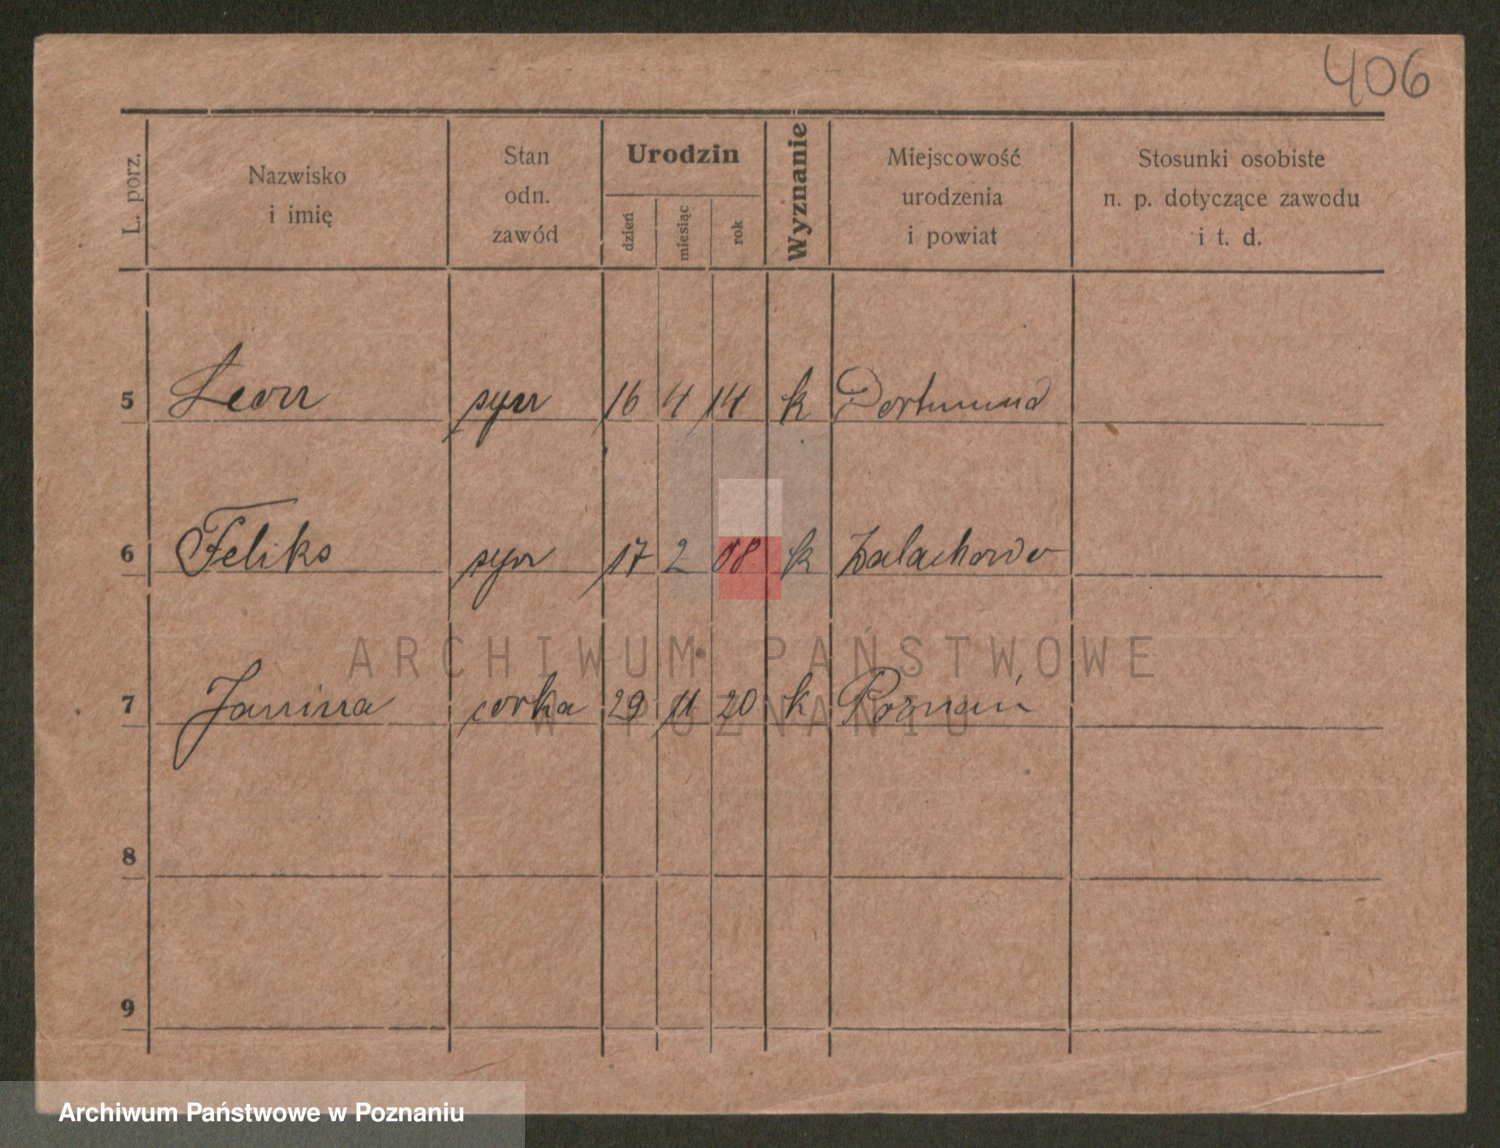 406
L. porz.
Nazwisko
i imię
Stan
odn.
zawód
Urodzin
dzień
miesiąc
rok
Wyznanie
Miejscowość
urodzenia
i powiat
Stosunki osobiste
n. p. dotyczące zawodu
i t. d.
5 Leon syn 16 4 14 k Dortmund
6 Feliks syn 17 2 08 k
7 Janina corka 29 11 20 k Poznań
8
9
ARCHIWUM PAŃSTWOWE
W POZNANIU
Archiwum Państwowe w Poznaniu